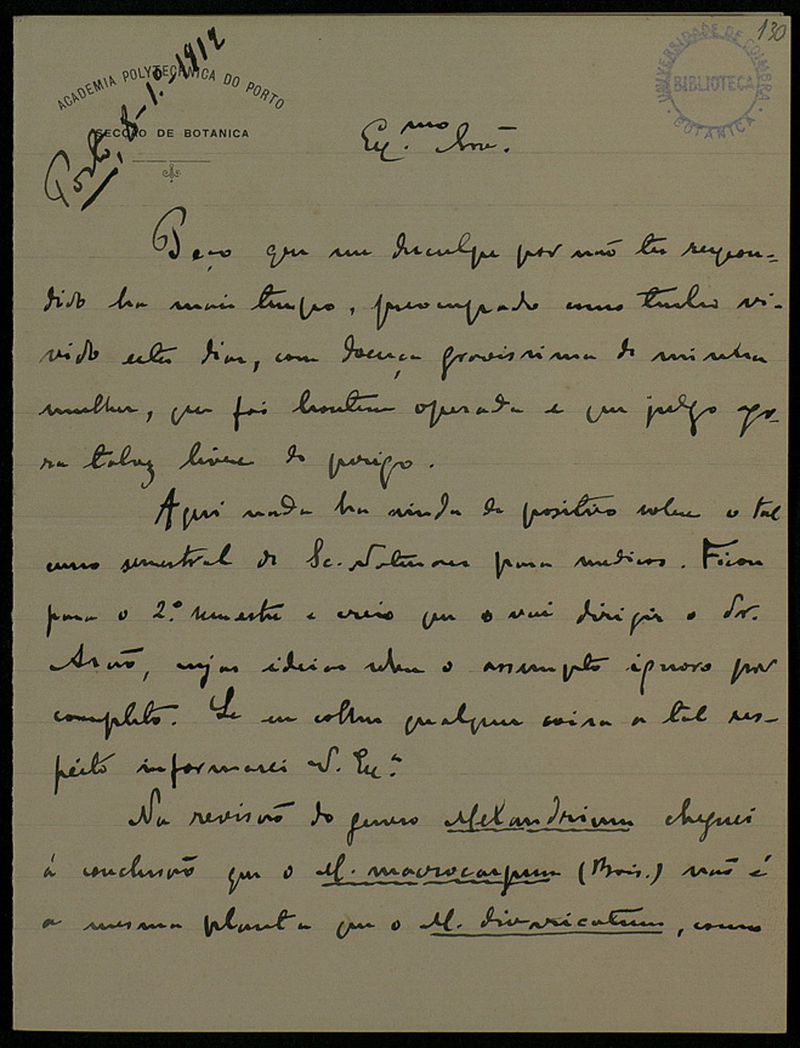 130
UNIVERSIDADE DE COIMBRA
BIBLIOTECA
BOTANICA
ACADEMIA POLYTECHNICA DO PORTO
SECÇÃO DE BOTANICA
Porto, 8-1º-1912
Ex.mo Snr.
Peço que me desculpe por não ter respon-
dido ha mais tempo, preocupado como tenho vi-
vido estes dias, com doença gravissima de minha
mulher, que foi hontem operada e que julgo ago-
ra talvez livre de perigo.
Aqui nada ha ainda de positivo sobre o tal
curso semestral de Sc. Naturaes para medicos. Ficou
para o 2.º semestre e creio que o vai dirigir o dr.
Arão, cujas ideias sobre o assumpto ignoro por
completo. Se eu colher qualquer coisa a tal res-
peito informarei V. Ex.ª
Na revisão do genero Melandrium cheguei
á conclusão que o M. macrocarpum (Bois.) não é
a mesma planta que o M. divaricatum, como